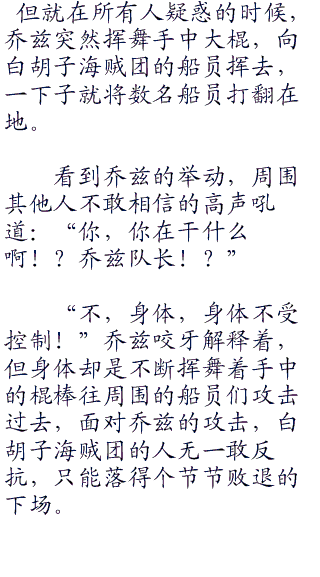 但就在所有人疑惑的时候，
乔兹突然挥舞手中大棍，向
白胡子海贼团的船员挥去，
一下子就将数名船员打翻在
地。
看到乔兹的举动，周围
其他人不敢相信的高声吼
道：“你，你在干什么
啊！？乔兹队长！？”
“不，身体，身体不受
控制！”乔兹咬牙解释着，
但身体却是不断挥舞着手中
的棍棒往周围的船员们攻击
过去，面对乔兹的攻击，白
胡子海贼团的人无一敢反
抗，只能落得个节节败退的
下场。